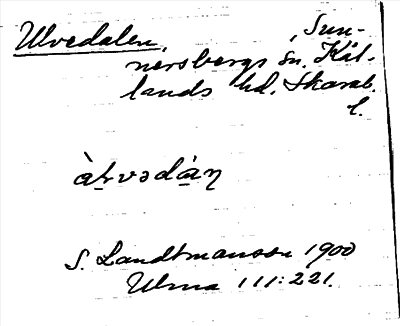 Ulvedalen, Sun-
nersbergs sn. Kål-
lands hd. Skarab.
l.
S. Landtmanson 1900
Ulma 111:221.